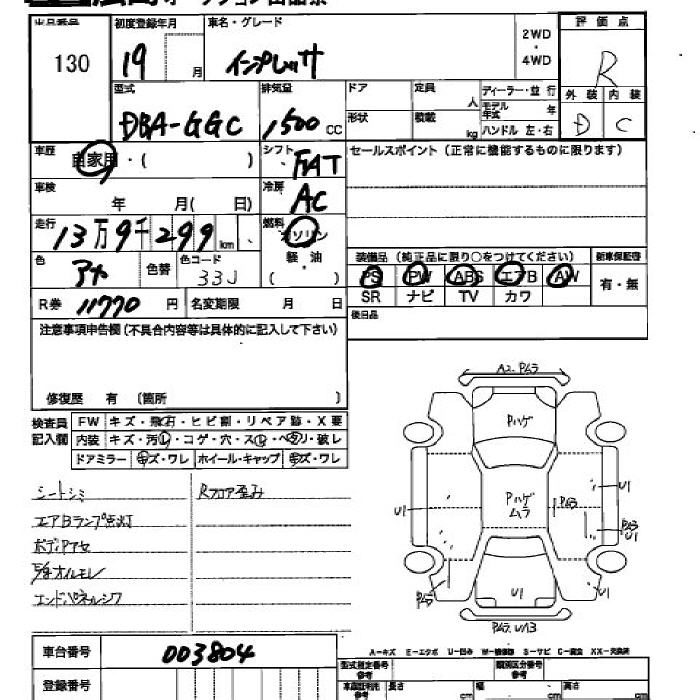 オークション出品票
出品番号 初度登録年月 車名・グレード 2WD・4WD 評価点
130 19 月 インプレッサ R
型式 排気量 ドア 定員 人 ディーラー・並行 外装 内装
DBA-GGC 1,500 CC 形状 積載 kg モデル年式 年 ハンドル 左・右 D C
車歴 自家用・( ) シフト FAT セールスポイント(正常に機能するものに限ります)
車検 年 月( 日) 冷房 AC
走行 13万9千299 km 燃料 ガソリン 軽油 ( )
色 アオ 色替 色コード 33J
装備品(純正品に限り○をつけてください) 新車保証書
PS PW ABS エアB AW 有・無
SR ナビ TV カワ
R券 11770 円 名変期限 月 日
後日品
注意事項申告欄(不具合内容等は具体的に記入して下さい)
修復歴 有 〔箇所 〕
検査員記入欄 FW キズ・飛石・ヒビ割・リペア跡・X要
内装 キズ・汚れ・コゲ・穴・スレ・ヘタリ・破レ
ドアミラー キズ・ワレ ホイール・キャップ キズ・ワレ
シートシミ Rフロア歪み
エアBランプ点灯
ボディアセ
オイルモレ
エンドパネルシワ
A2.Pムラ
Pハゲ
U1 Pハゲ ムラ Pムラ U1
Pムラ U1
Pムラ U1 U1
Pムラ.UA3
A-キズ E-エクボ U-凹み W-補修跡 S-サビ C-腐食 XX-交換済
車台番号 003804
型式指定番号 参考 類別区分番号 参考
登録番号
車庫証明用 参考 長さ cm 幅 cm 高さ cm